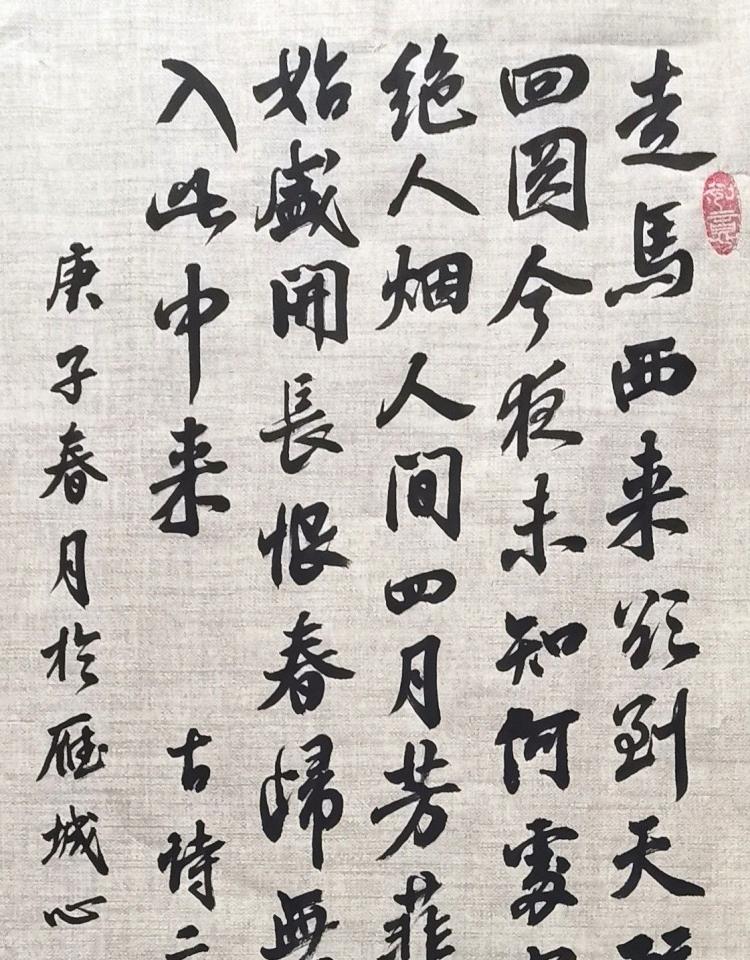 走馬西来欲到天
回圆今夜未知何處
绝人烟人間四月芳菲
始盛開長恨春歸無
入此中来
古詩二
庚子春月於雁城心
如意